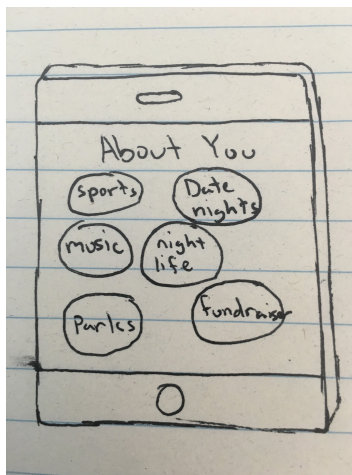 About You
sports
Date
nights
music
night
life
Parks
fundraiser